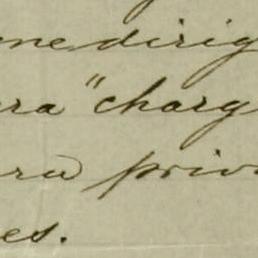 ne dirig
ra "charg
ra priv
es.